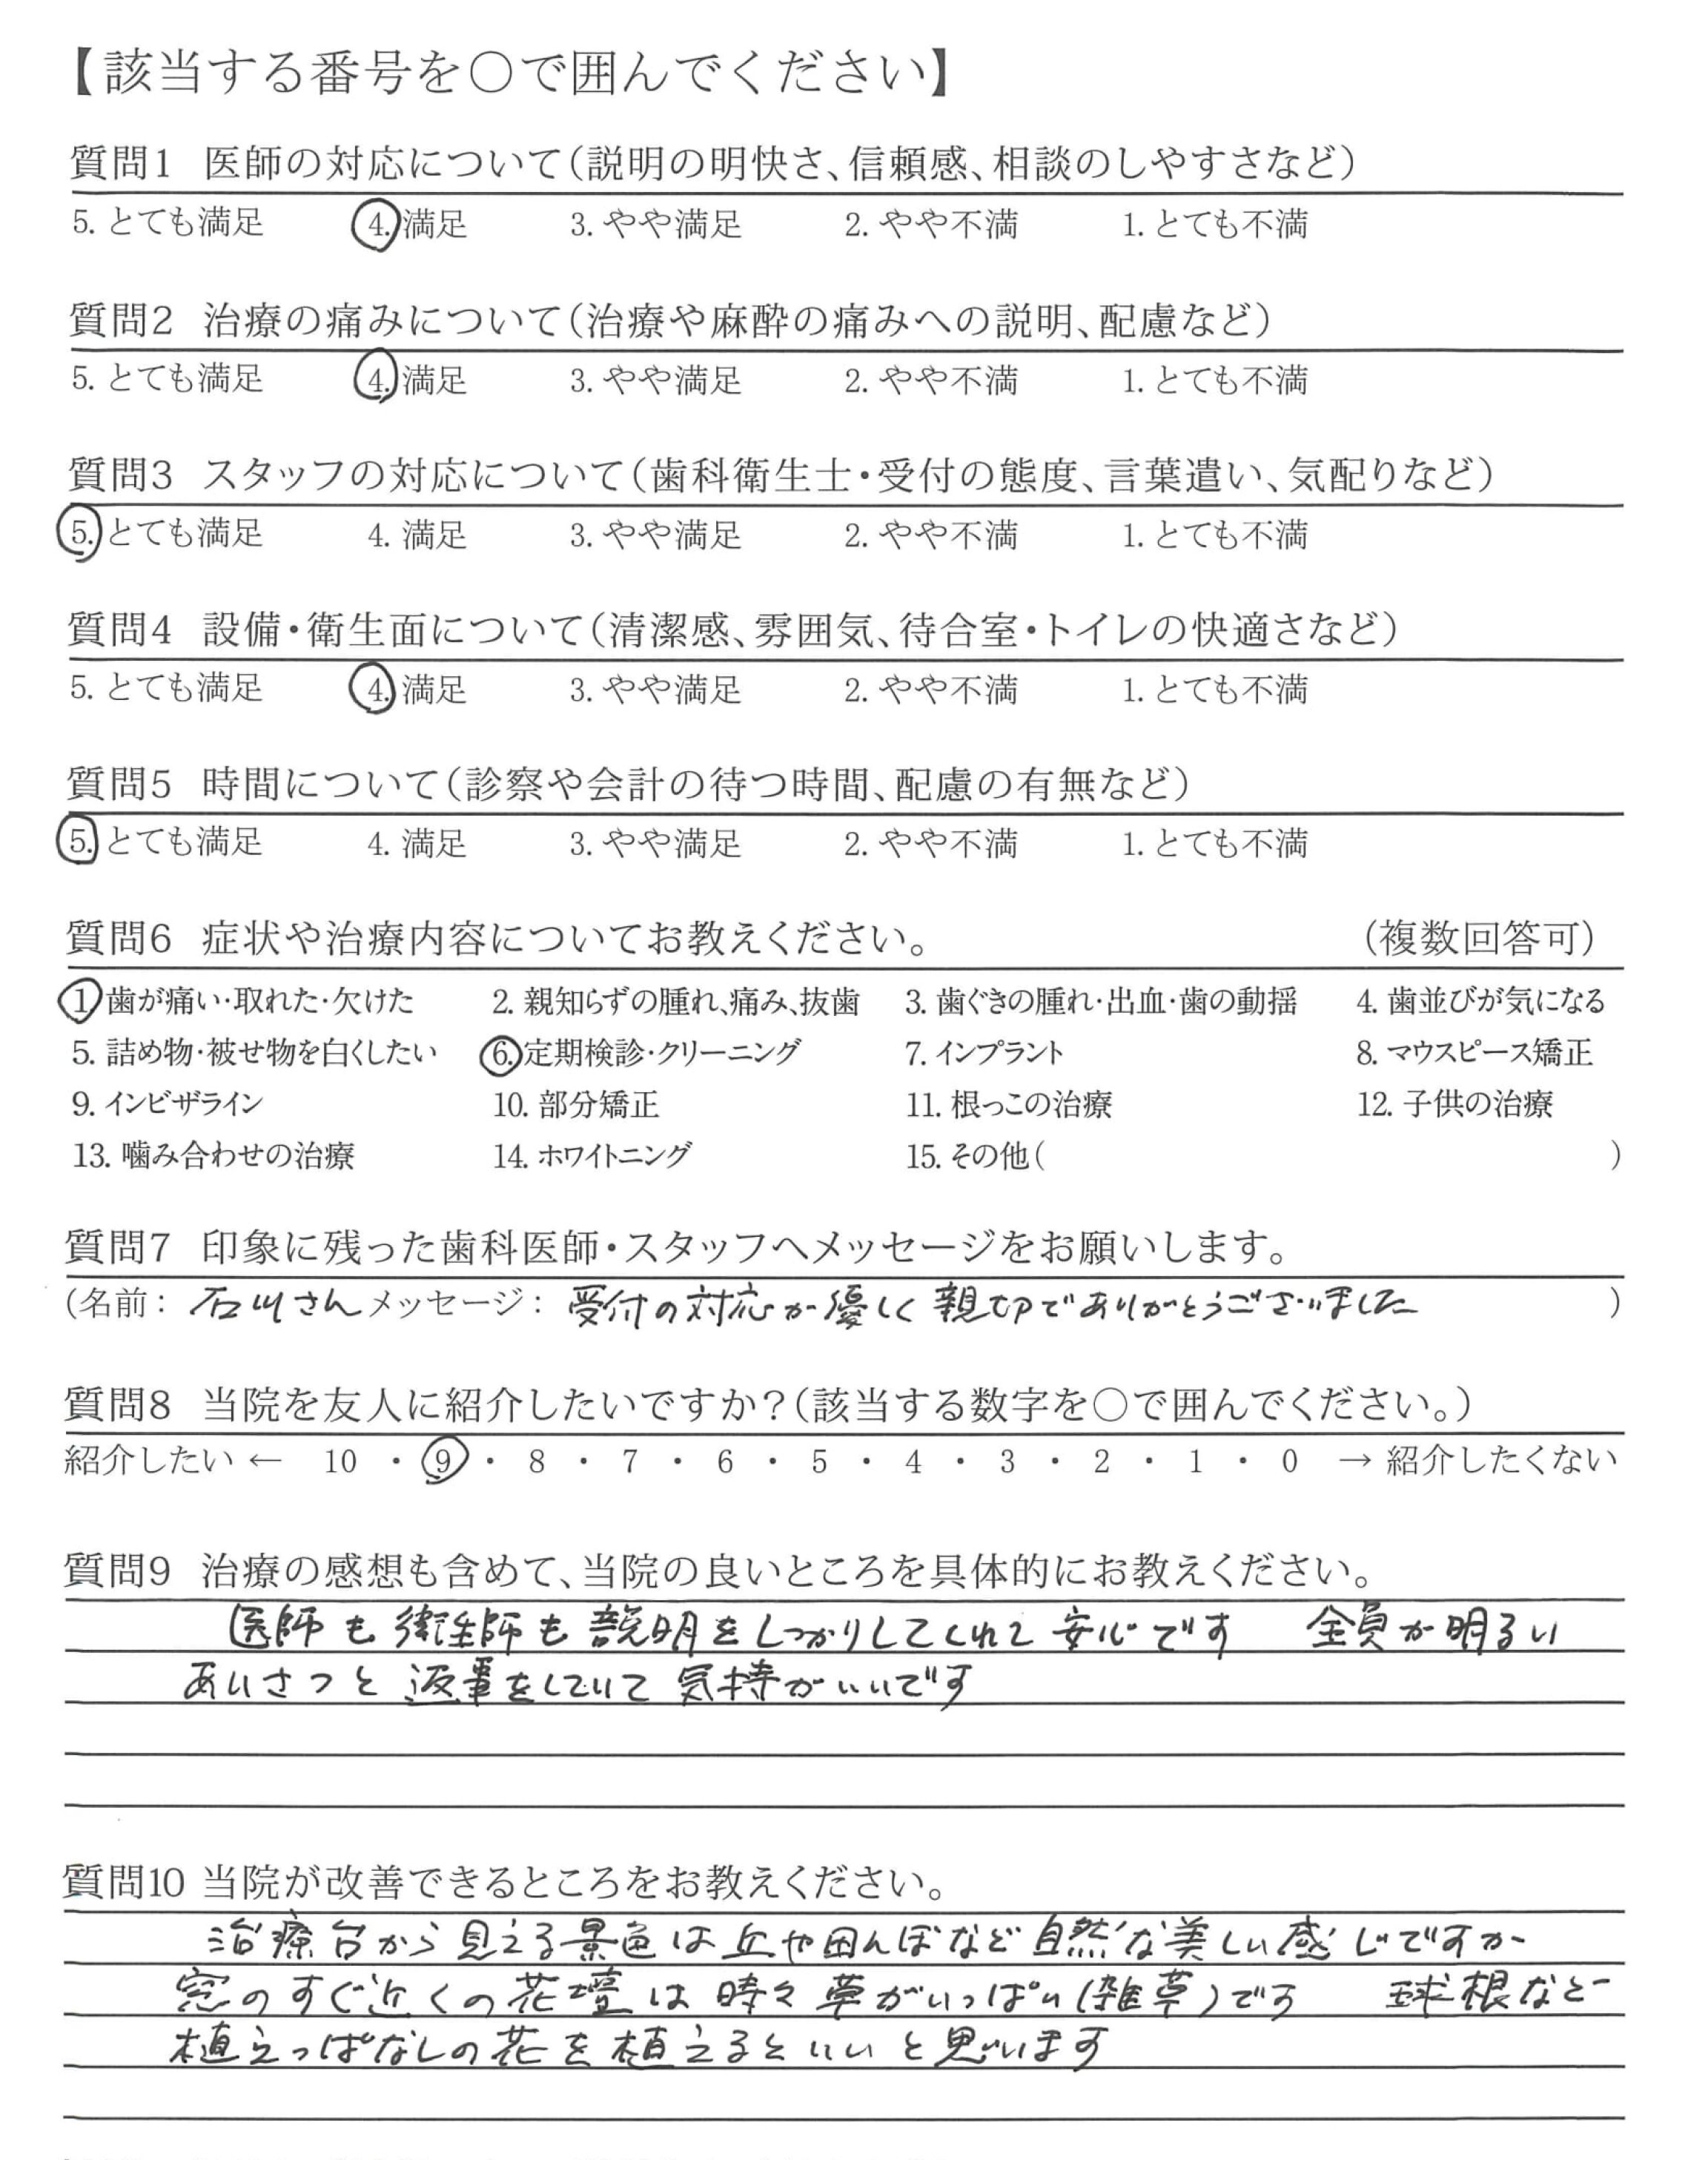 【該当する番号を○で囲んでください】
質問1 医師の対応について(説明の明快さ、信頼感、相談のしやすさなど)
5. とても満足 4. 満足 3. やや満足 2. やや不満 1. とても不満
質問2 治療の痛みについて(治療や麻酔の痛みへの説明、配慮など)
5. とても満足 4. 満足 3. やや満足 2. やや不満 1. とても不満
質問3 スタッフの対応について(歯科衛生士・受付の態度、言葉遣い、気配りなど)
5. とても満足 4. 満足 3. やや満足 2. やや不満 1. とても不満
質問4 設備・衛生面について(清潔感、雰囲気、待合室・トイレの快適さなど)
5. とても満足 4. 満足 3. やや満足 2. やや不満 1. とても不満
質問5 時間について(診察や会計の待つ時間、配慮の有無など)
5. とても満足 4. 満足 3. やや満足 2. やや不満 1. とても不満
質問6 症状や治療内容についてお教えください。 (複数回答可)
1. 歯が痛い・取れた・欠けた 2. 親知らずの腫れ、痛み、抜歯 3. 歯ぐきの腫れ・出血・歯の動揺 4. 歯並びが気になる
5. 詰め物・被せ物を白くしたい 6. 定期検診・クリーニング 7. インプラント 8. マウスピース矯正
9. インビザライン 10. 部分矯正 11. 根っこの治療 12. 子供の治療
13. 噛み合わせの治療 14. ホワイトニング 15. その他( )
質問7 印象に残った歯科医師・スタッフへメッセージをお願いします。
(名前: 石川さん メッセージ: 受付の対応が優しく親切でありがとうございました )
質問8 当院を友人に紹介したいですか?(該当する数字を○で囲んでください。)
紹介したい ← 10 ・ 9 ・ 8 ・ 7 ・ 6 ・ 5 ・ 4 ・ 3 ・ 2 ・ 1 ・ 0 → 紹介したくない
質問9 治療の感想も含めて、当院の良いところを具体的にお教えください。
医師も衛生師も説明をしっかりしてくれて安心です 全員が明るい
あいさつと返事をしていて気持がいいです
質問10 当院が改善できるところをお教えください。
治療台から見える景色は丘や田んぼなど自然な美しい感じですが
窓のすぐ近くの花壇は時々草がいっぱい(雑草)です 球根など
植えっぱなしの花を植えるといいと思います